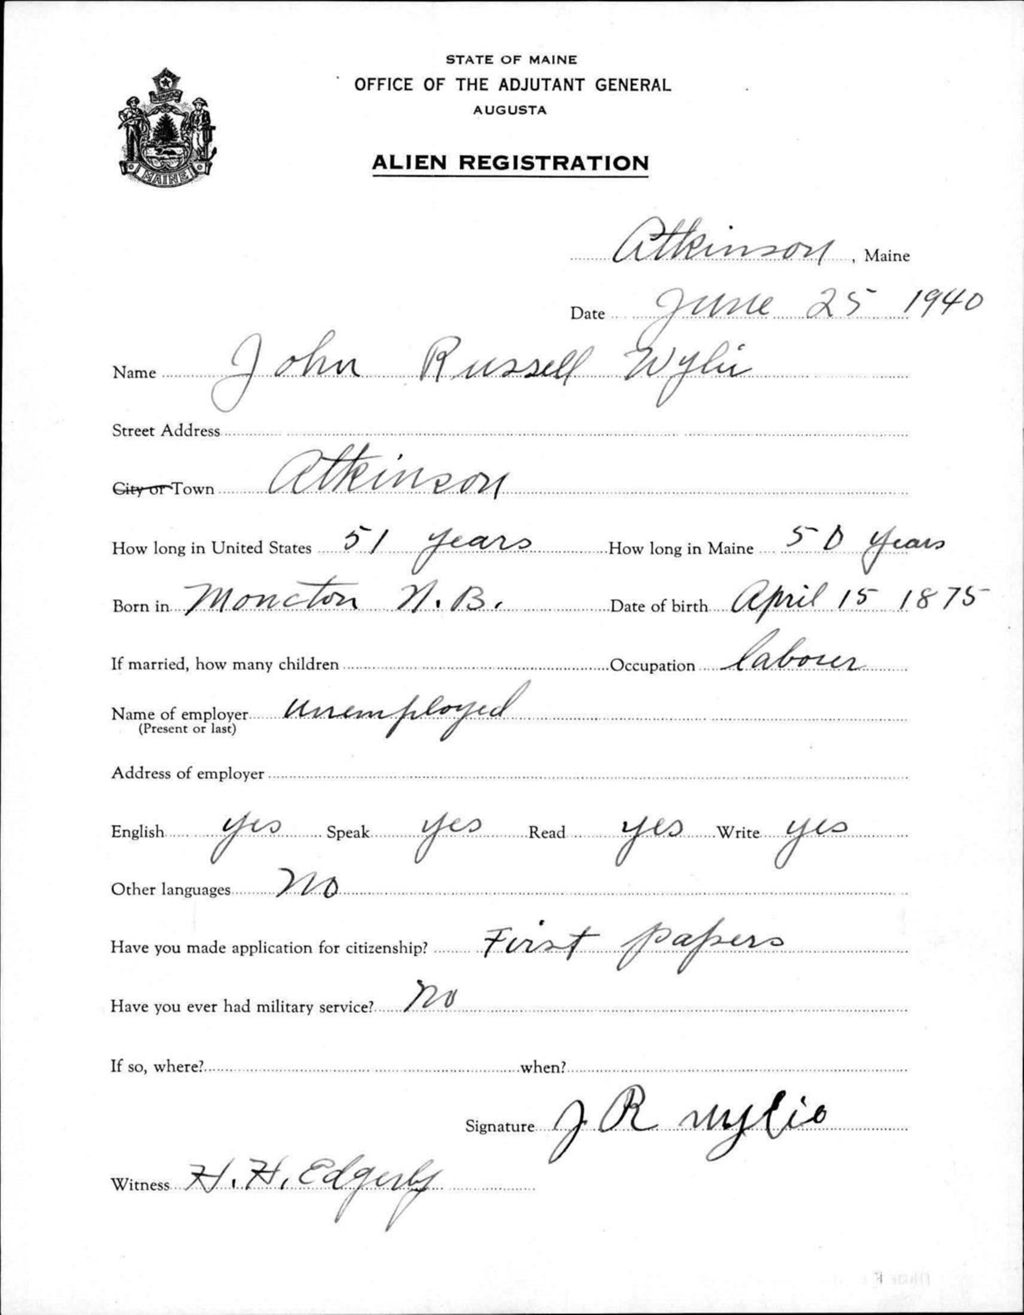 STATE OF MAINE
OFFICE OF THE ADJUTANT GENERAL
AUGUSTA
MAINE
ALIEN REGISTRATION
Atkinson, Maine
Date June 25 1940
Name John Russell Wylie
Street Address
City or Town Atkinson
How long in United States 51 years How long in Maine 50 years
Born in Moncton N.B. Date of birth April 15 1875
If married, how many children Occupation labourer
Name of employer unemployed
(Present or last)
Address of employer
English yes Speak yes Read yes Write yes
Other languages No
Have you made application for citizenship? First papers
Have you ever had military service? No
If so, where? when?
Signature J R Wylie
Witness H. H. Edgerly